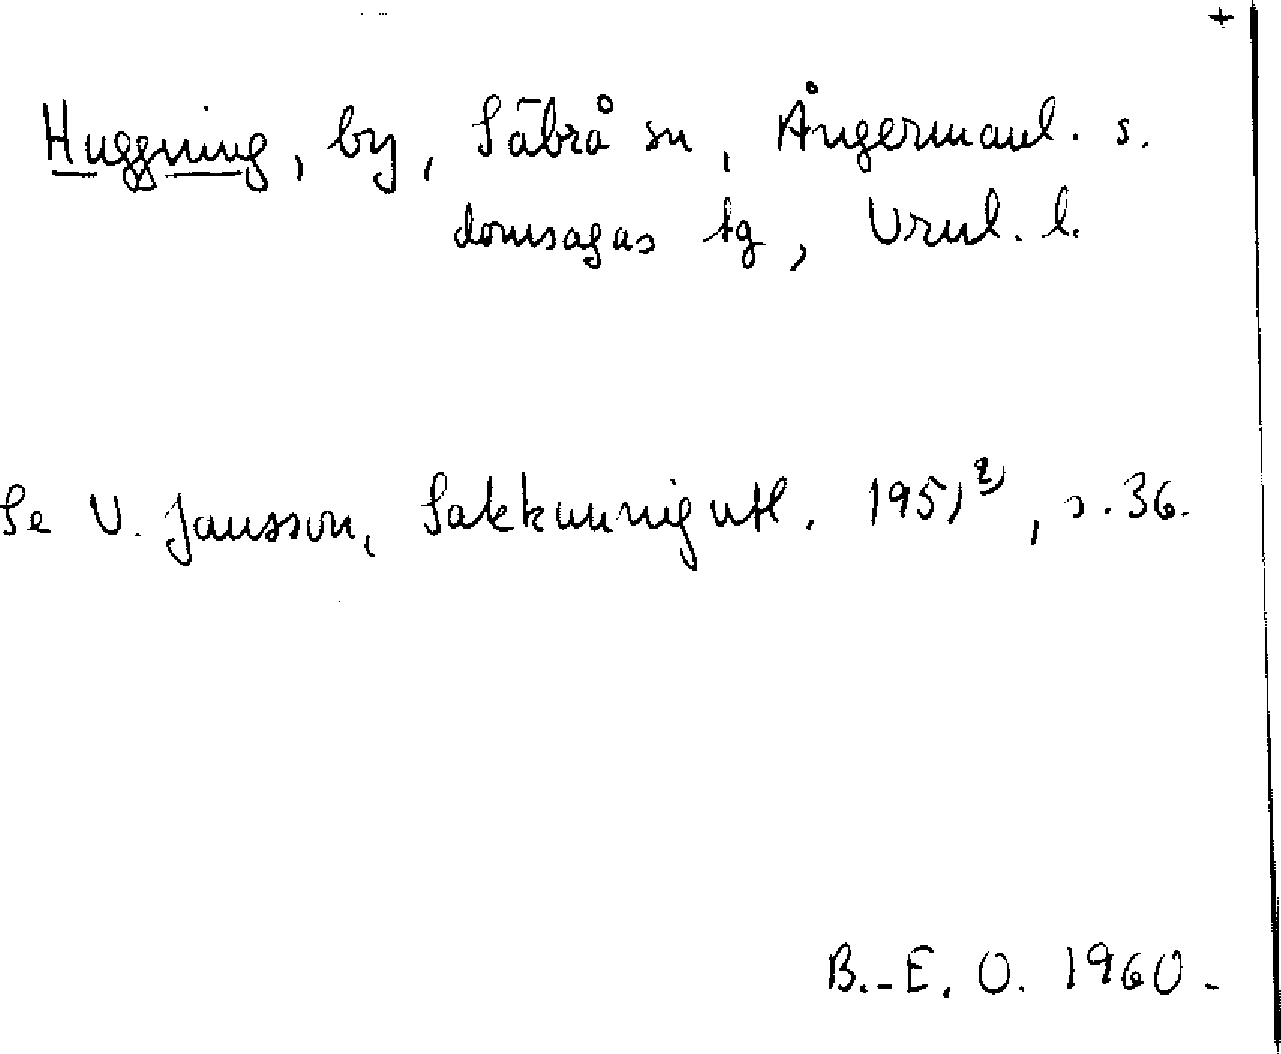 +
Huggning, by, Säbrå sn, Ångermanl. s.
domsagas tg, Vrnl. l.
Se V. Jansson, Sakkunnigutl. 1951², s. 36.
B.-E. O. 1960.